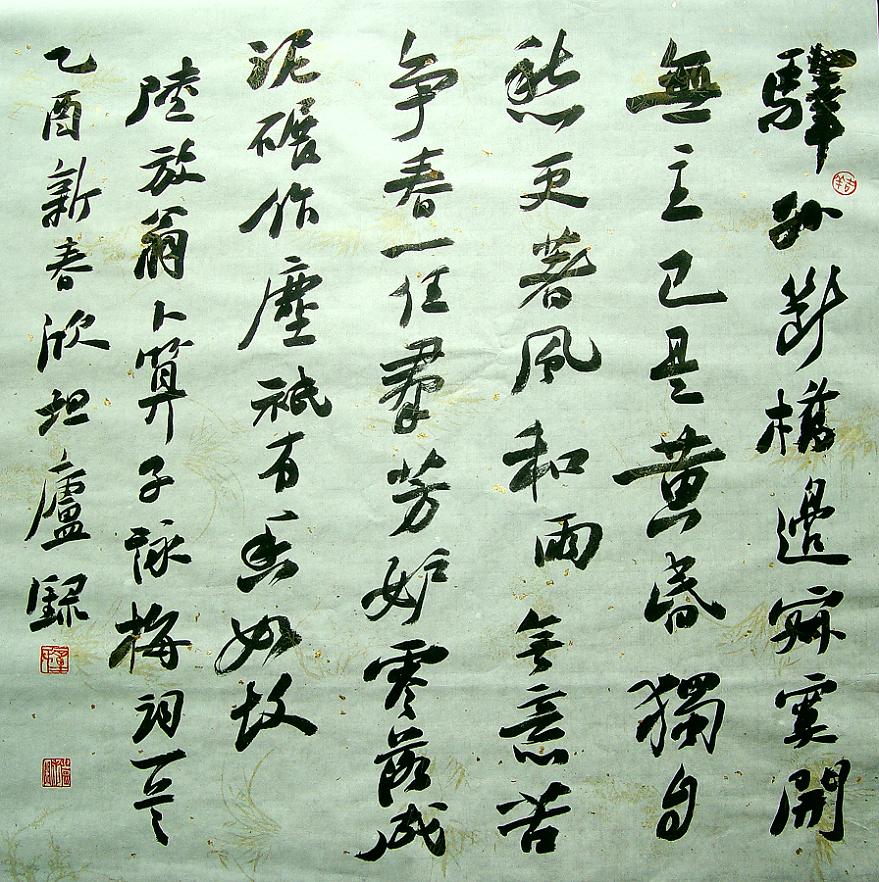 驛外斷橋邊寂寞開
無主已是黃昏獨自
愁更著風和雨無意苦
争春一任羣芳妒零落成
泥碾作塵祇有香如故
陸放翁卜算子詠梅詞一首
乙酉新春於坦廬錄